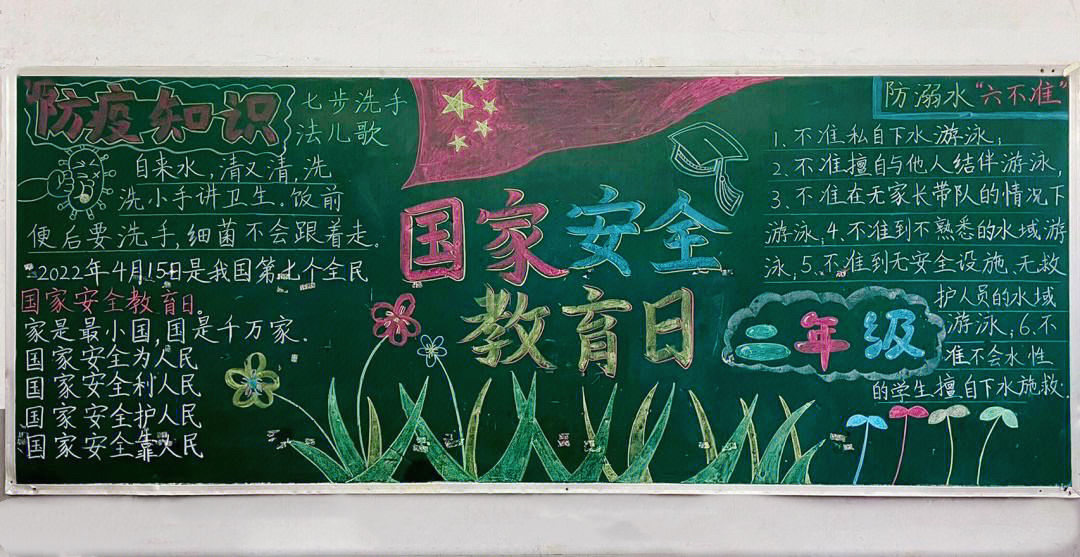 防疫知识
七步洗手
法儿歌
自来水,清又清,洗
洗小手讲卫生.饭前
便后要洗手,细菌不会跟着走。
2022年4月15日是我国第七个全民
国家安全教育日。
家是最小国,国是千万家.
国家安全为人民
国家安全利人民
国家安全护人民
国家安全靠人民
国家安全
教育日
二年级
防溺水“六不准”
1.不准私自下水游泳;
2.不准擅自与他人结伴游泳,
3.不准在无家长带队的情况下
游泳;4.不准到不熟悉的水域游
泳,5.不准到无安全设施、无救
护人员的水域
游泳;6.不
准不会水性
的学生擅自下水施救.